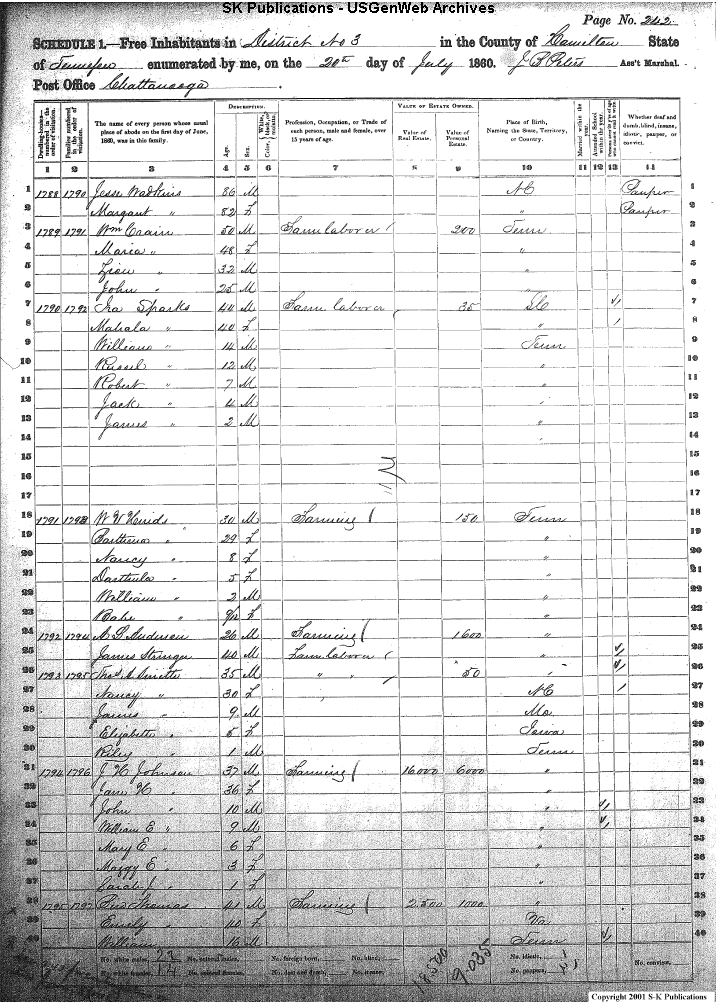 SK Publications - USGenWeb Archives
Page No. 242
SCHEDULE 1.—Free Inhabitants in District No 3 in the County of Hamilton State
of Tennessee enumerated by me, on the 20th day of July 1860. J B Peters Ass't Marshal.
Post Office Chattanooga
Dwelling-houses—numbered in the order of visitation.
Families numbered in the order of visitation.
The name of every person whose usual place of abode on the first day of June, 1860, was in this family.
DESCRIPTION.
Age.
Sex.
Color,
Profession, Occupation, or Trade of each person, male and female, over 15 years of age.
VALUE OF ESTATE OWNED.
Value of Real Estate.
Value of Personal Estate.
Place of Birth, Naming the State, Territory, or Country.
Married within the year.
Attended School within the year.
Whether deaf and dumb, blind, insane, idiotic, pauper, or convict.
1 2 3 4 5 6 7 8 9 10 11 12 13 14
1 1788 1790 Jesse Wadkins 86 M NC Pauper 1
2 Margaret " 82 f " Pauper 2
3 1789 1791 Wm Crain 50 M Farm laborer 200 Tenn 3
4 Maria " 48 f " 4
5 32 M " 5
6 John " 25 M " 6
7 1790 1792 Ira Sparks 44 M Farm laborer 35 7
8 Mahala " 40 f " 8
9 William " 14 M Tenn 9
10 Russel " 12 M " 10
11 Robert " 7 M " 11
12 Jack " 4 M " 12
13 James " 2 M " 13
14 14
15 15
16 16
17 17
18 1791 1793 30 M Farming 150 Tenn 18
19 29 f " 19
20 Nancy " 8 f " 20
21 Darthula " 5 f " 21
22 William " 2 M " 22
23 Babe " f " 23
24 1792 1794 A S Anderson 26 M Farming 1600 " 24
25 James Stringer 40 M Farm laborer " 25
26 1793 1795 35 M " " 50 " 26
27 Nancy " 30 f NC 27
28 James " 9 M Mo 28
29 Elizabeth " 5 f Iowa 29
30 Riley " 1 M Tenn 30
31 1794 1796 J H Johnson 37 M Farming 16000 6000 " 31
32 Jane H " 36 f " 32
33 John " 10 M " 33
34 William E " 9 M " 34
35 Mary E " 6 f " 35
36 Maggy E " 3 f " 36
37 Sarah J " 1 f " 37
38 1795 1797 Thomas 41 M Farming 2500 1000 " 38
39 Emily " 40 f Va 39
40 William " 16 M Tenn 40
No. white males, 22 No. colored males, No. foreign born, No. blind, No. idiotic,
No. white females, 14 No. colored females, No. deaf and dumb, No. insane, 18,500 9,035 No. paupers, No. convicts,
Copyright 2001 S-K Publications